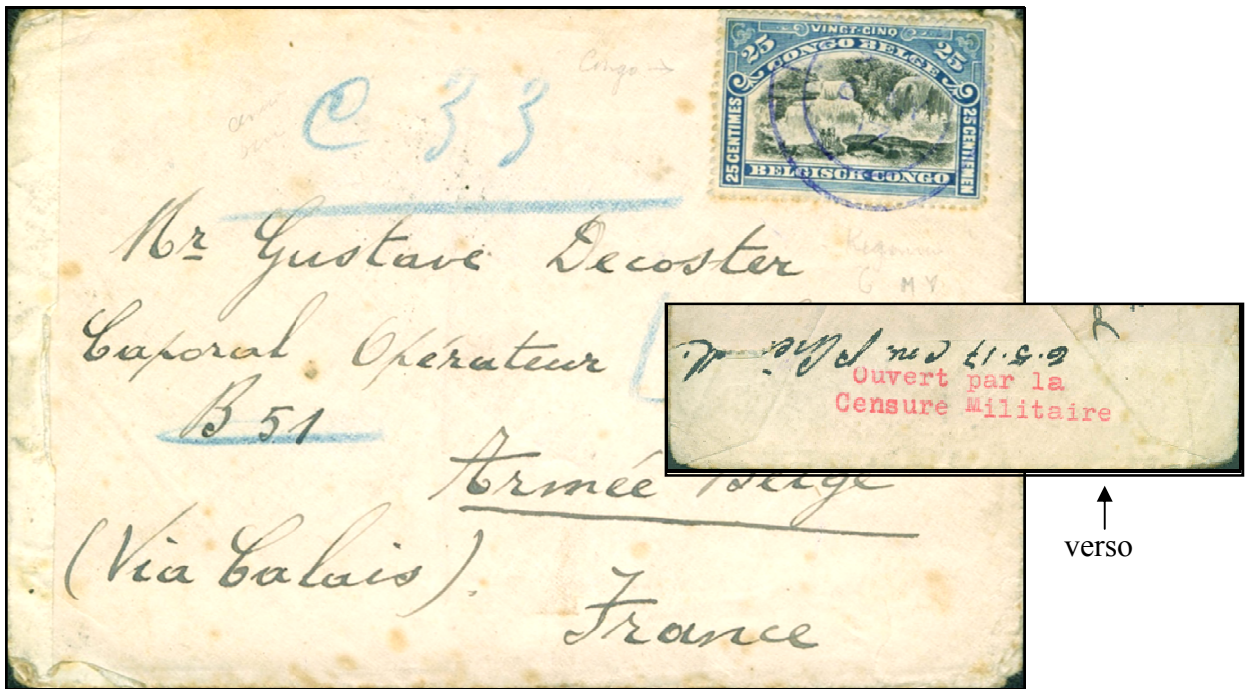 Congo →
C 33
25 VINGT-CINQ 25
CONGO BELGE
25 CENTIMES
25 CENTIEMEN
BELGISCH-CONGO
Mr Gustave Decoster
Caporal Opérateur
B 51
Armée Belge
(Via Calais).
France
6.5.17
Ouvert par la
Censure Militaire
verso